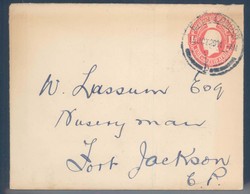 W. Lassum Esq
Nurseryman
Fort Jackson
C. P.